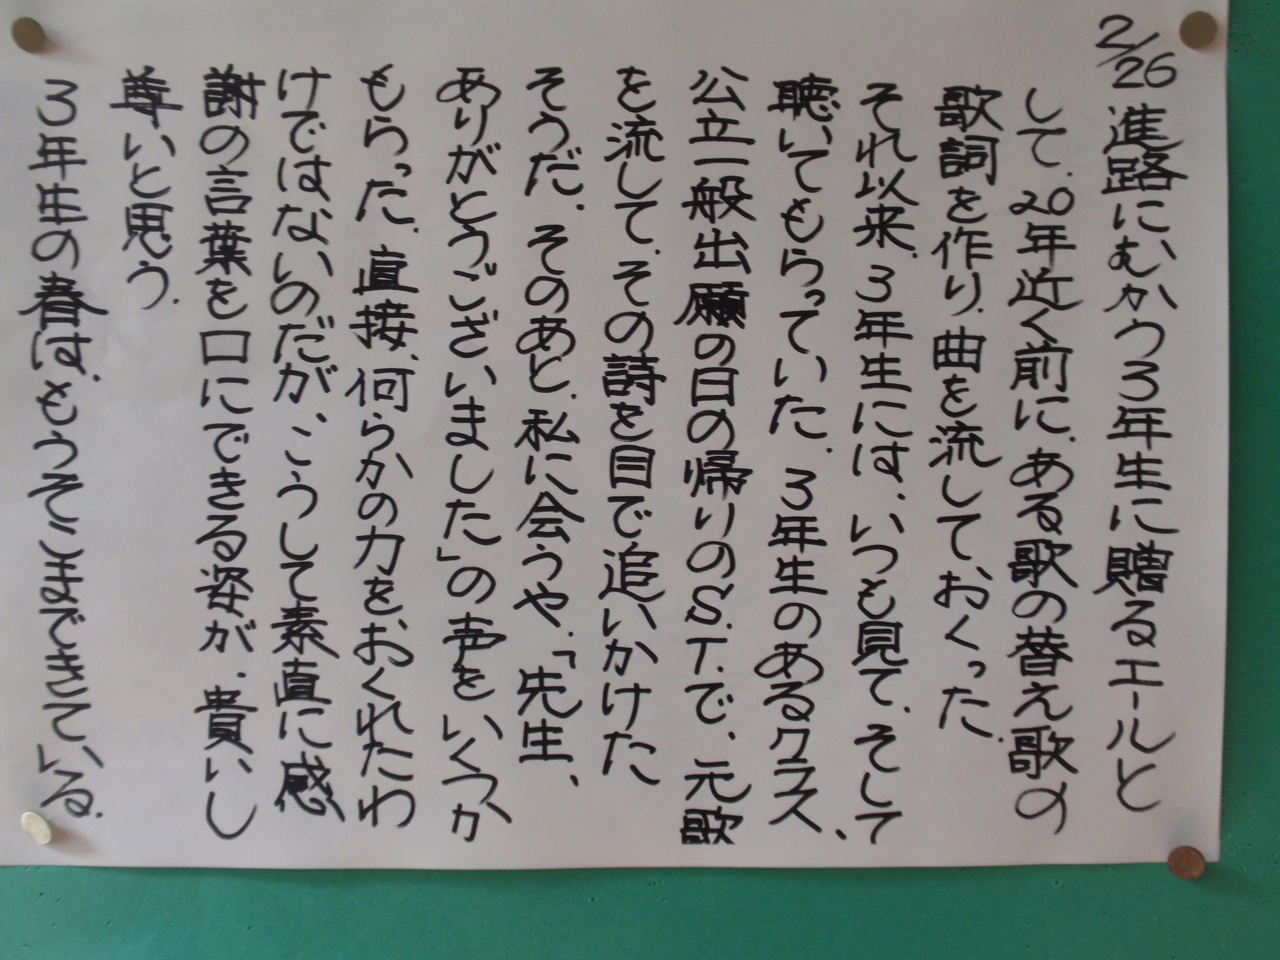 2/26
進路にむかう3年生に贈るエールと
して、20年近く前に、ある歌の替え歌の
歌詞を作り、曲を流しておくった。
それ以来、3年生には、いつも見て、そして
聴いてもらっていた。3年生のあるクラス、
公立一般出願の日の帰りのS.T.で、元歌
を流して、その詩を目で追いかけた
そうだ。そのあと、私に会うや、「先生、
ありがとうございました」の声をいくつか
もらった。直接、何らかの力をおくれたわ
けではないのだが、こうして素直に感
謝の言葉を口にできる姿が、貴いし
尊いと思う。
3年生の春は、もうそこまできている。